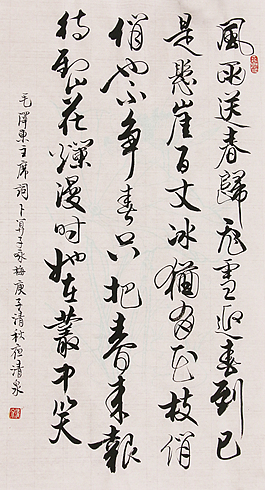 風雨送春歸飛雪迎春到已
是懸崖百丈冰猶有花枝俏
俏也不争春只把春来報
待到山花爛漫时她在叢中笑
毛澤東主席詞卜算子咏梅庚子清秋夜清泉